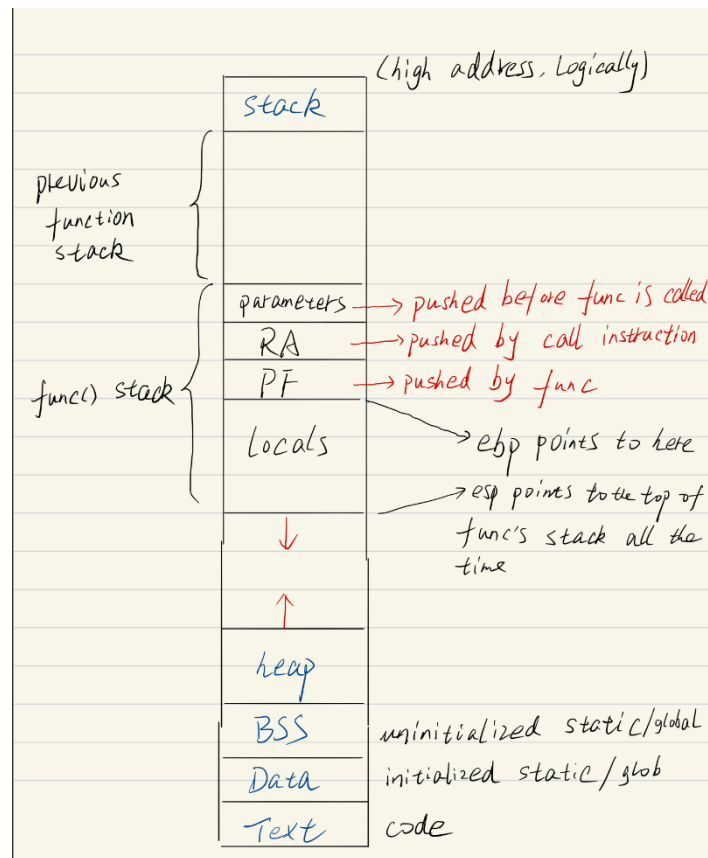 (high address, Logically)
stack
previous
function
stack
parameters → pushed before func is called
RA → pushed by call instruction
func() stack
PF → pushed by func
Locals
ebp points to here
esp points to the top of
func's stack all the
time
heap
BSS uninitialized static/global
Data initialized static/glob
Text code